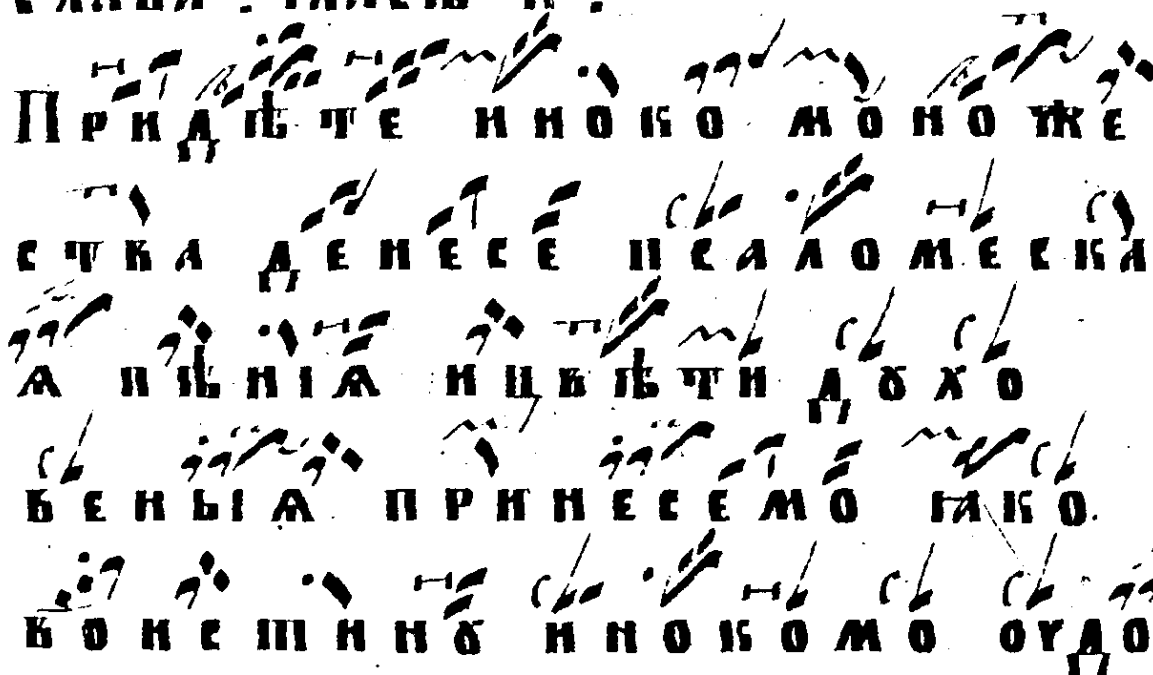 Придѣте иноко моноже
ства денесе псаломеска
ѧ пѣниѧ ицвѣти дꙋхо
веныѧ принесемо ꙗко
воистинꙋ инокомо оудо